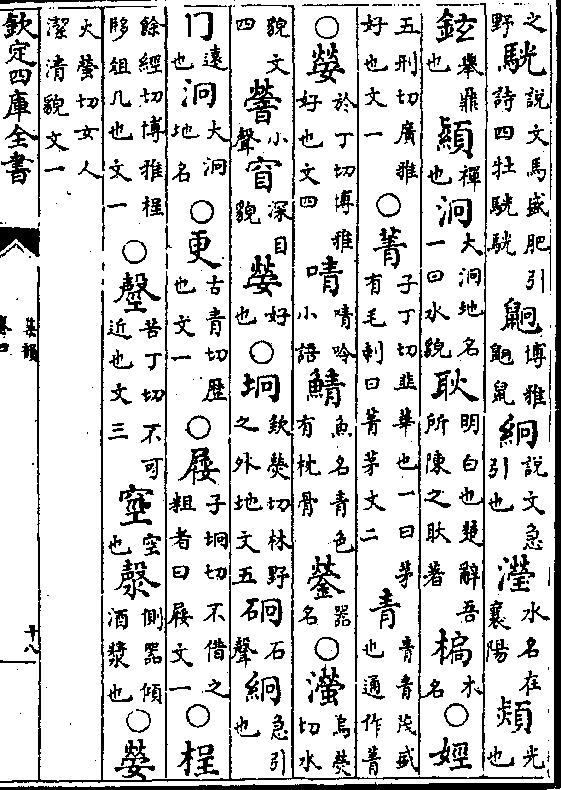 之野駫說文馬盛肥引詩四牡駫駫鼮博雅鼩鼠絅說文急引也瀅水名在襄陽熲光也
鉉舉鼎也顈襌也泂大泂地名一曰水貌耿明白也楚辭吾所陳之耿著槅木名○娙
五刑切廣雅好也文一○菁子丁切韭華也一曰茅有毛刺曰菁茅文二青青青茂盛也通作菁
○嫈於丁切博雅好也文四啨啨呤小語鯖魚名青色有枕骨鎣器名○瀠烏熒切水
貌文四䓨小聲窅深目貌嫈好也○坰欽熒切林野之外地文五硘石聲絅急引
也冂遠也泂大泂地名○更古青切歷也文一○屐子坰切不借之粗者曰屐文一○桯
餘經切博雅桯䏶俎几也文一○罄苦丁切不可近也文三窒空也漀側器傾酒漿也○嫈
火螢切女人潔清貌文一
欽定四庫全書
集韻
卷四
十八